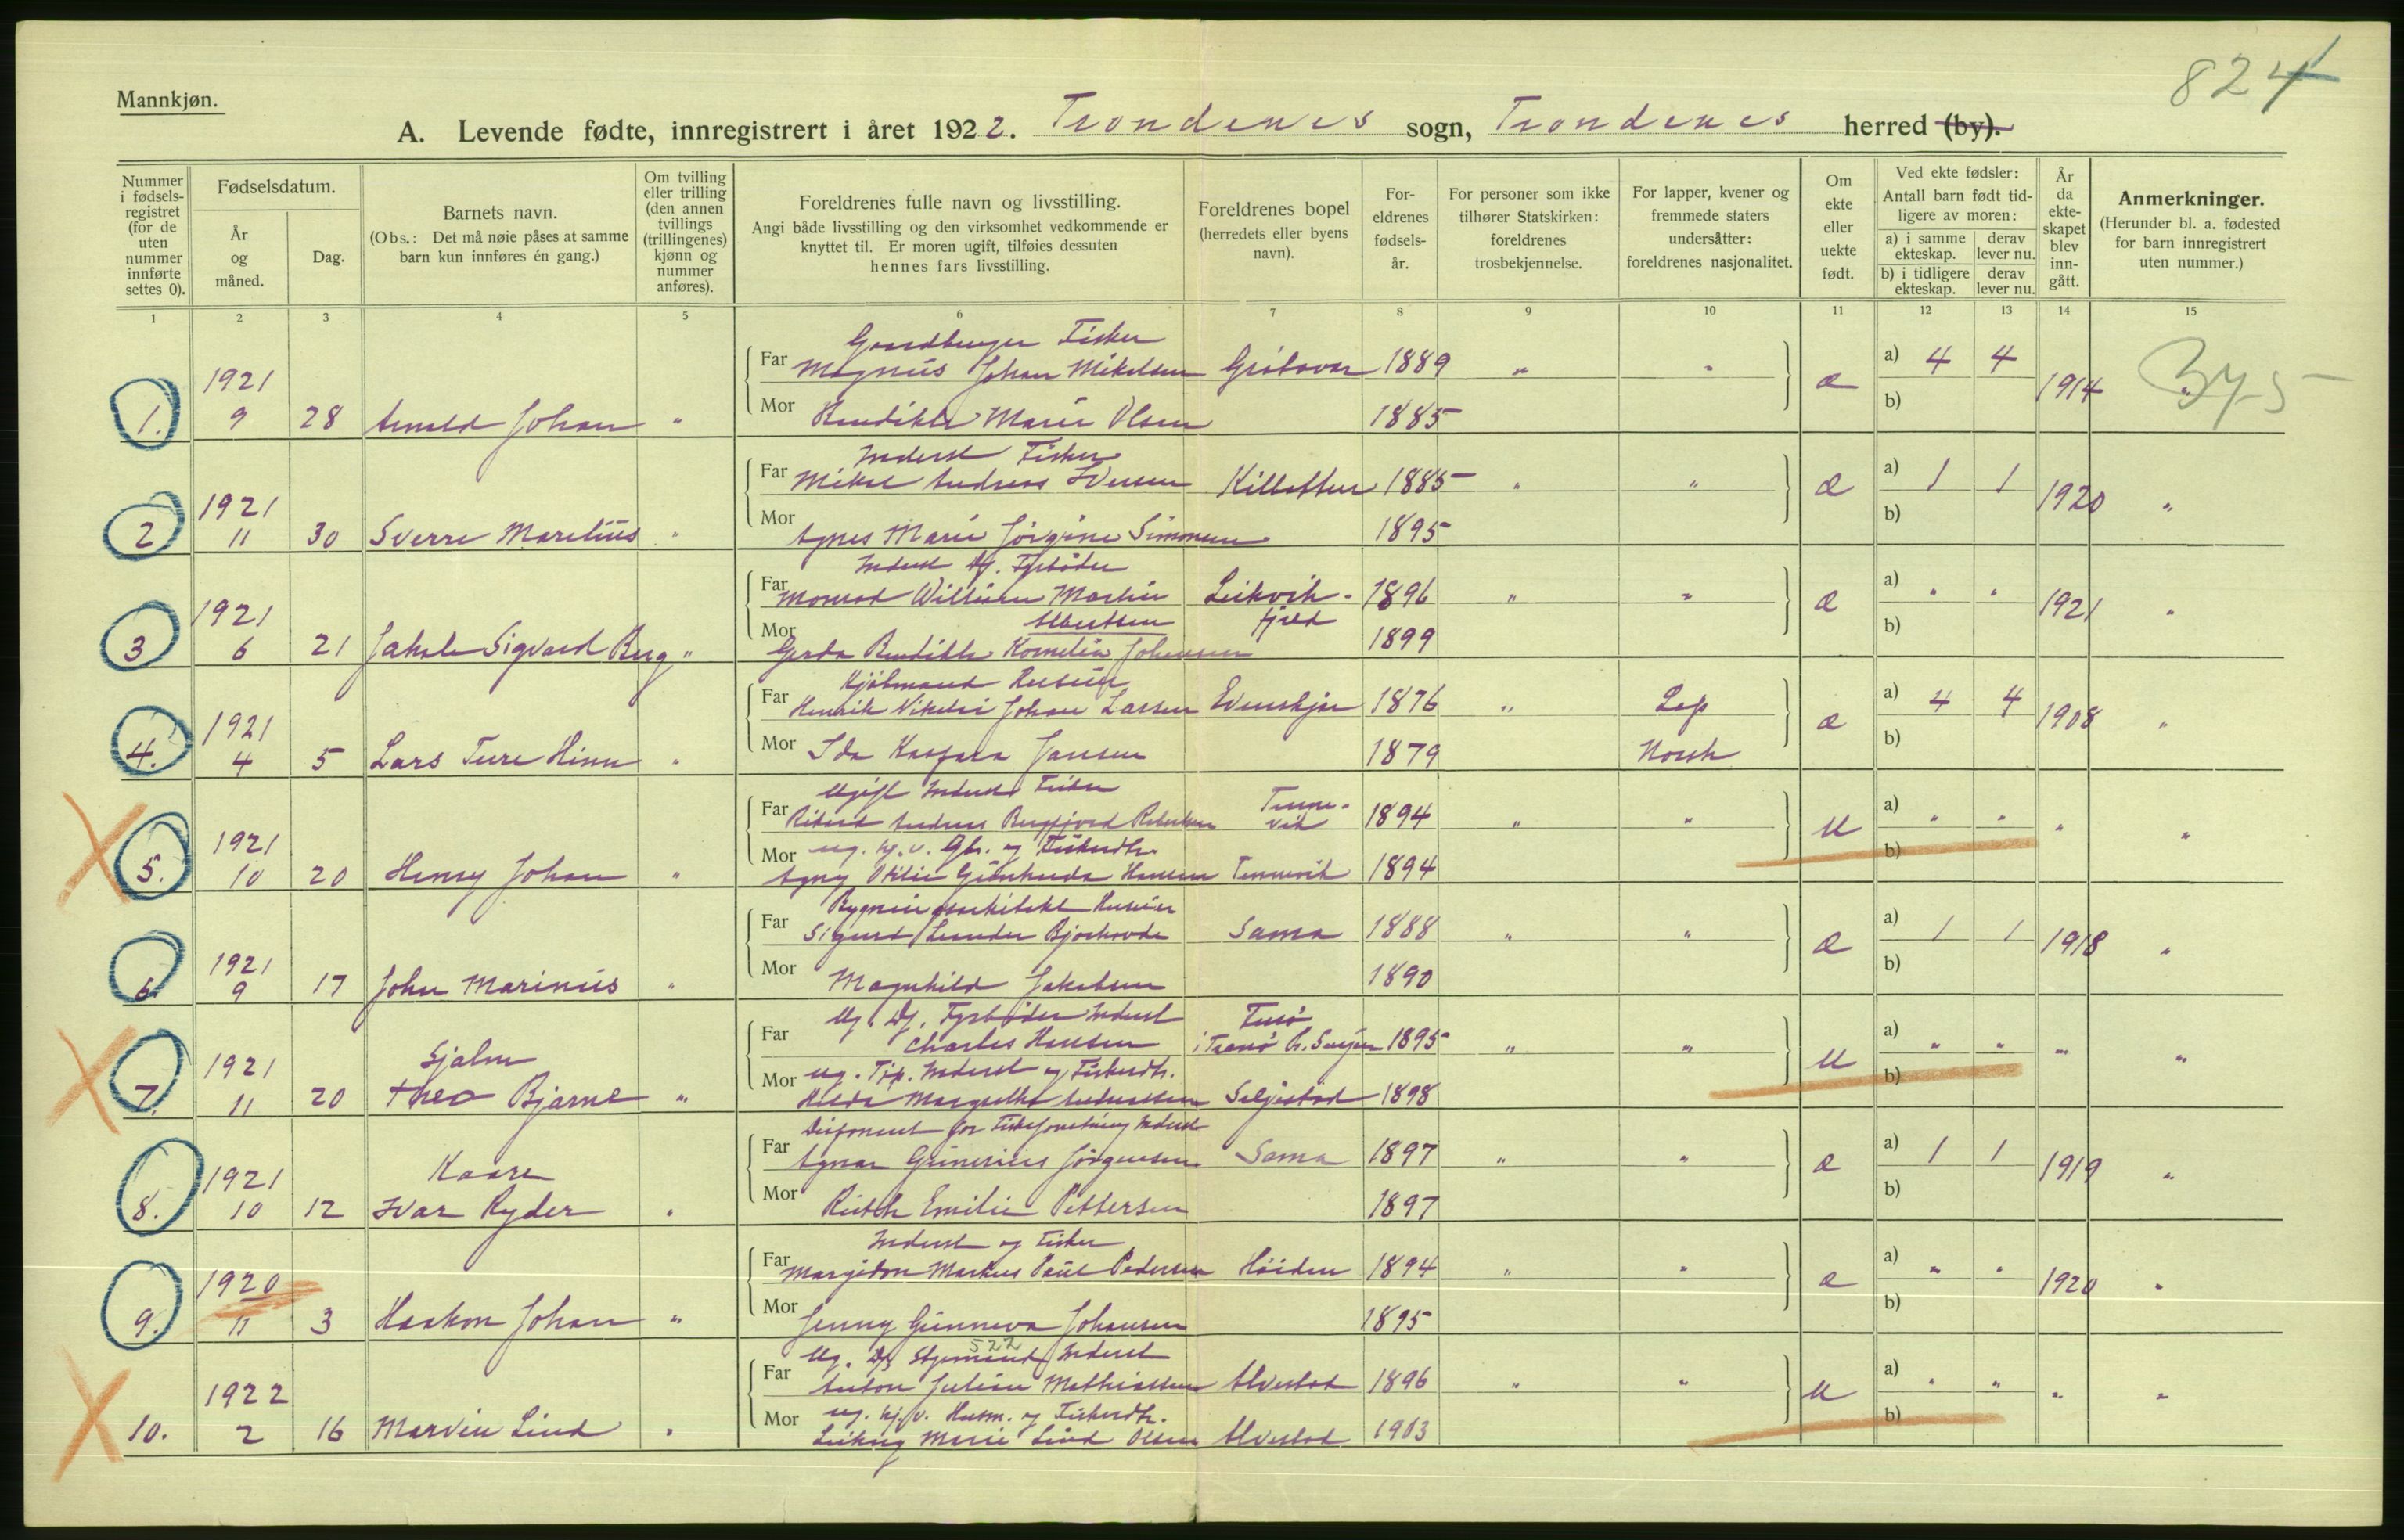 824
Mannkjøn.
A. Levende fødte, innregistrert i året 1922. Trondenes sogn, Trondenes herred (by).
Nummer i fødselsregistret (for de uten nummer innførte settes 0).
Fødselsdatum.
År og måned.
Dag.
Barnets navn.
(Obs.: Det må nøie påses at samme barn kun innføres én gang.)
Om tvilling eller trilling (den annen tvillings (trillingenes) kjønn og nummer anføres).
Foreldrenes fulle navn og livsstilling.
Angi både livsstilling og den virksomhet vedkommende er knyttet til. Er moren ugift, tilføies dessuten hennes fars livsstilling.
Foreldrenes bopel (herredets eller byens navn).
Foreldrenes fødselsår.
For personer som ikke tilhører Statskirken: foreldrenes trosbekjennelse.
For lapper, kvener og fremmede staters undersåtter: foreldrenes nasjonalitet.
Om ekte eller uekte født.
Ved ekte fødsler: Antall barn født tidligere av moren:
a) i samme ekteskap. derav lever nu.
b) i tidligere ekteskap. derav lever nu.
År da ekteskapet blev inngått.
Anmerkninger.
(Herunder bl. a. fødested for barn innregistrert uten nummer.)
1 2 3 4 5 6 7 8 9 10 11 12 13 14 15
Gaardbruger Fisker
Far Magnus Johan Mikelsen 1889 " " a) 4 4
1921
1. 9 28 Arnold Johan " Mor Bendikte Marie Olsen 1885 b) 1914
Inderst Fisker
Far Mikal Andreas Iversen 1885 " " a) 1 1
1921
2 11 30 Sverre Marelius " Mor Agnes Marie Jørgine Simonsen 1895 b) 1920 "
Far Monrad William Martin Leikvik- 1896 " " a) " "
Albertsen fjeld
1921
3 6 21 Jakob Sigvard Berg " Mor Gerda Bendikte Kornelia Johansen 1899 b) 1921 "
Far Henrik Nikolai Johan Larsen Evenskjær 1876 " Lap a) 4 4
1921
4. 4 5 Lars Ture Hinn " Mor Ida Kaspara Jansen 1879 Norsk b) 1908 "
Ugift Inderst Fisker
Far Rikard Andreas Tennevik 1894 " " U a) " " " "
1921
Mor ug. hj. v. Gbr. og Fiskerdtr.
5. 10 20 Henry Johan " Hansen Tennevik 1894 b)
Far Sigurd Leander Bjørkovde Sama 1888 " " a) 1 1
1921
6. 9 17 John Marinius " Mor Magnhild Jakobsen 1890 b) 1918 "
Ug. Dj. Fyrbøder Inderst
Far Charles Hansen i Tranø 1895 " " U a) " " " "
1921 Hjalm
Mor ug. Inderst og Fiskerdtr.
7. 11 20 Theo Bjarne " Hilda Margretha Andreassen Seljestad 1898 b)
Disponent for Fiskeforretning Inderst
Far Agnar Jørgensen Sama 1897 " " a) 1 1
1921 Kaare
8. 10 12 Ivar Ryder " Mor Ruth Emilie Pettersen 1897 b) 1919 "
Inderst og Fisker
Far Margido Markus Paul Pedersen Høiden 1894 " " a) " "
1920
9. 11 3 Haakon Johan " Mor Jenny Gunneva Johansen 1895 b) 1920 "
522
Far Anton Julian Mathiassen Alvestad 1896 " " U a) " " " "
1922
Mor ug. hj. v. Husm. og Fiskerdtr.
10. 2 16 Marvin Lind " Marie Lind Olsen Alvestad 1903 b)